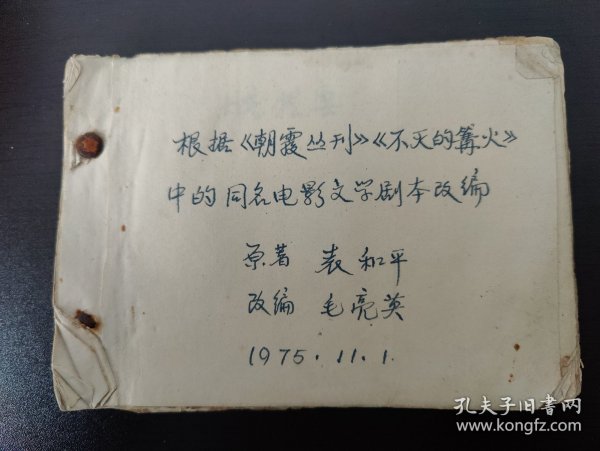 根据《朝霞丛刊》《不灭的篝火》
中的同名电影文学剧本改编
原著 袁和平
改编 毛亮英
1975.11.1.
孔夫子旧书网
www.kongfz.com